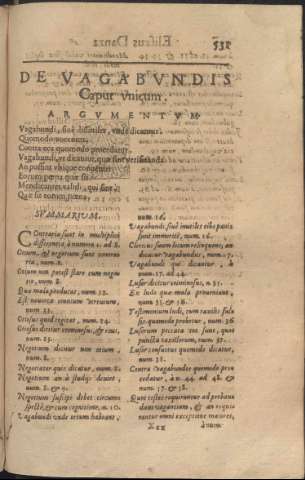 Elisæus Danza
531
DE VAGABVNDIS
Caput vnicum.
ARGVMENTVM
Vagabundi, siue discursores, vnde dicantur.
Quomodo noceant.
Contra eos quomodo procedatur.
Vagabundi, vt dicantur, quæ sint
An possint vbique
Forum
Mendicantes validi, qui sint,
Quæ sit eorum pœna.
SVMMARIVM.
Contraria sunt in multiplici
differentia, à numero 1. ad 8.
Otium, & negotium sunt contra-
ria, num. 8.
Otium non potest stare cum nego-
tio, num. 8.
Quæ mala producat, num. 12.
Est nouerca omnium virtutum,
num. 21.
Otiosus quid cogitet, num. 24.
Otiosus dicitur criminosus, & reus,
num. 25.
Negotium dicitur non otium,
num. 8.
Negotiator quis dicatur, num. 8.
Negotium an à studijs deuiet,
num. 8. & 9.
Negotium suscipi debet circums-
pectè, & cum cognitione, n. 10.
Vagabundi vnde victum habeant,
num. 16.
Vagabundi siue inutiles cibo potiùs
sunt immeriti, num. 16.
Clericus suum locum relinquens, an
dicatur vagabundus, num. 7.
Vagabundi qui dicantur, à
num. 17. ad 44.
Lusor dicitur vitiosus, n. 35.
Ex ludo quæ mala proueniant,
num. 35. & 38.
Testimonium ludi, cum taxillis fal-
sis quomodo probetur, num. 36
Lusorum peccata tot sunt, quot
puncta taxillorum, num. 37.
Lusor consuetus quomodo dicatur,
num. 38.
Contra Vagabundos quomodo pro-
cedatur, à n. 44. ad 48. &
num. 57. & 58.
Quot testes requirantur ad proban-
dam vagationem, & an requi-
rantur omni exceptione maiores,
Xxx
à num.